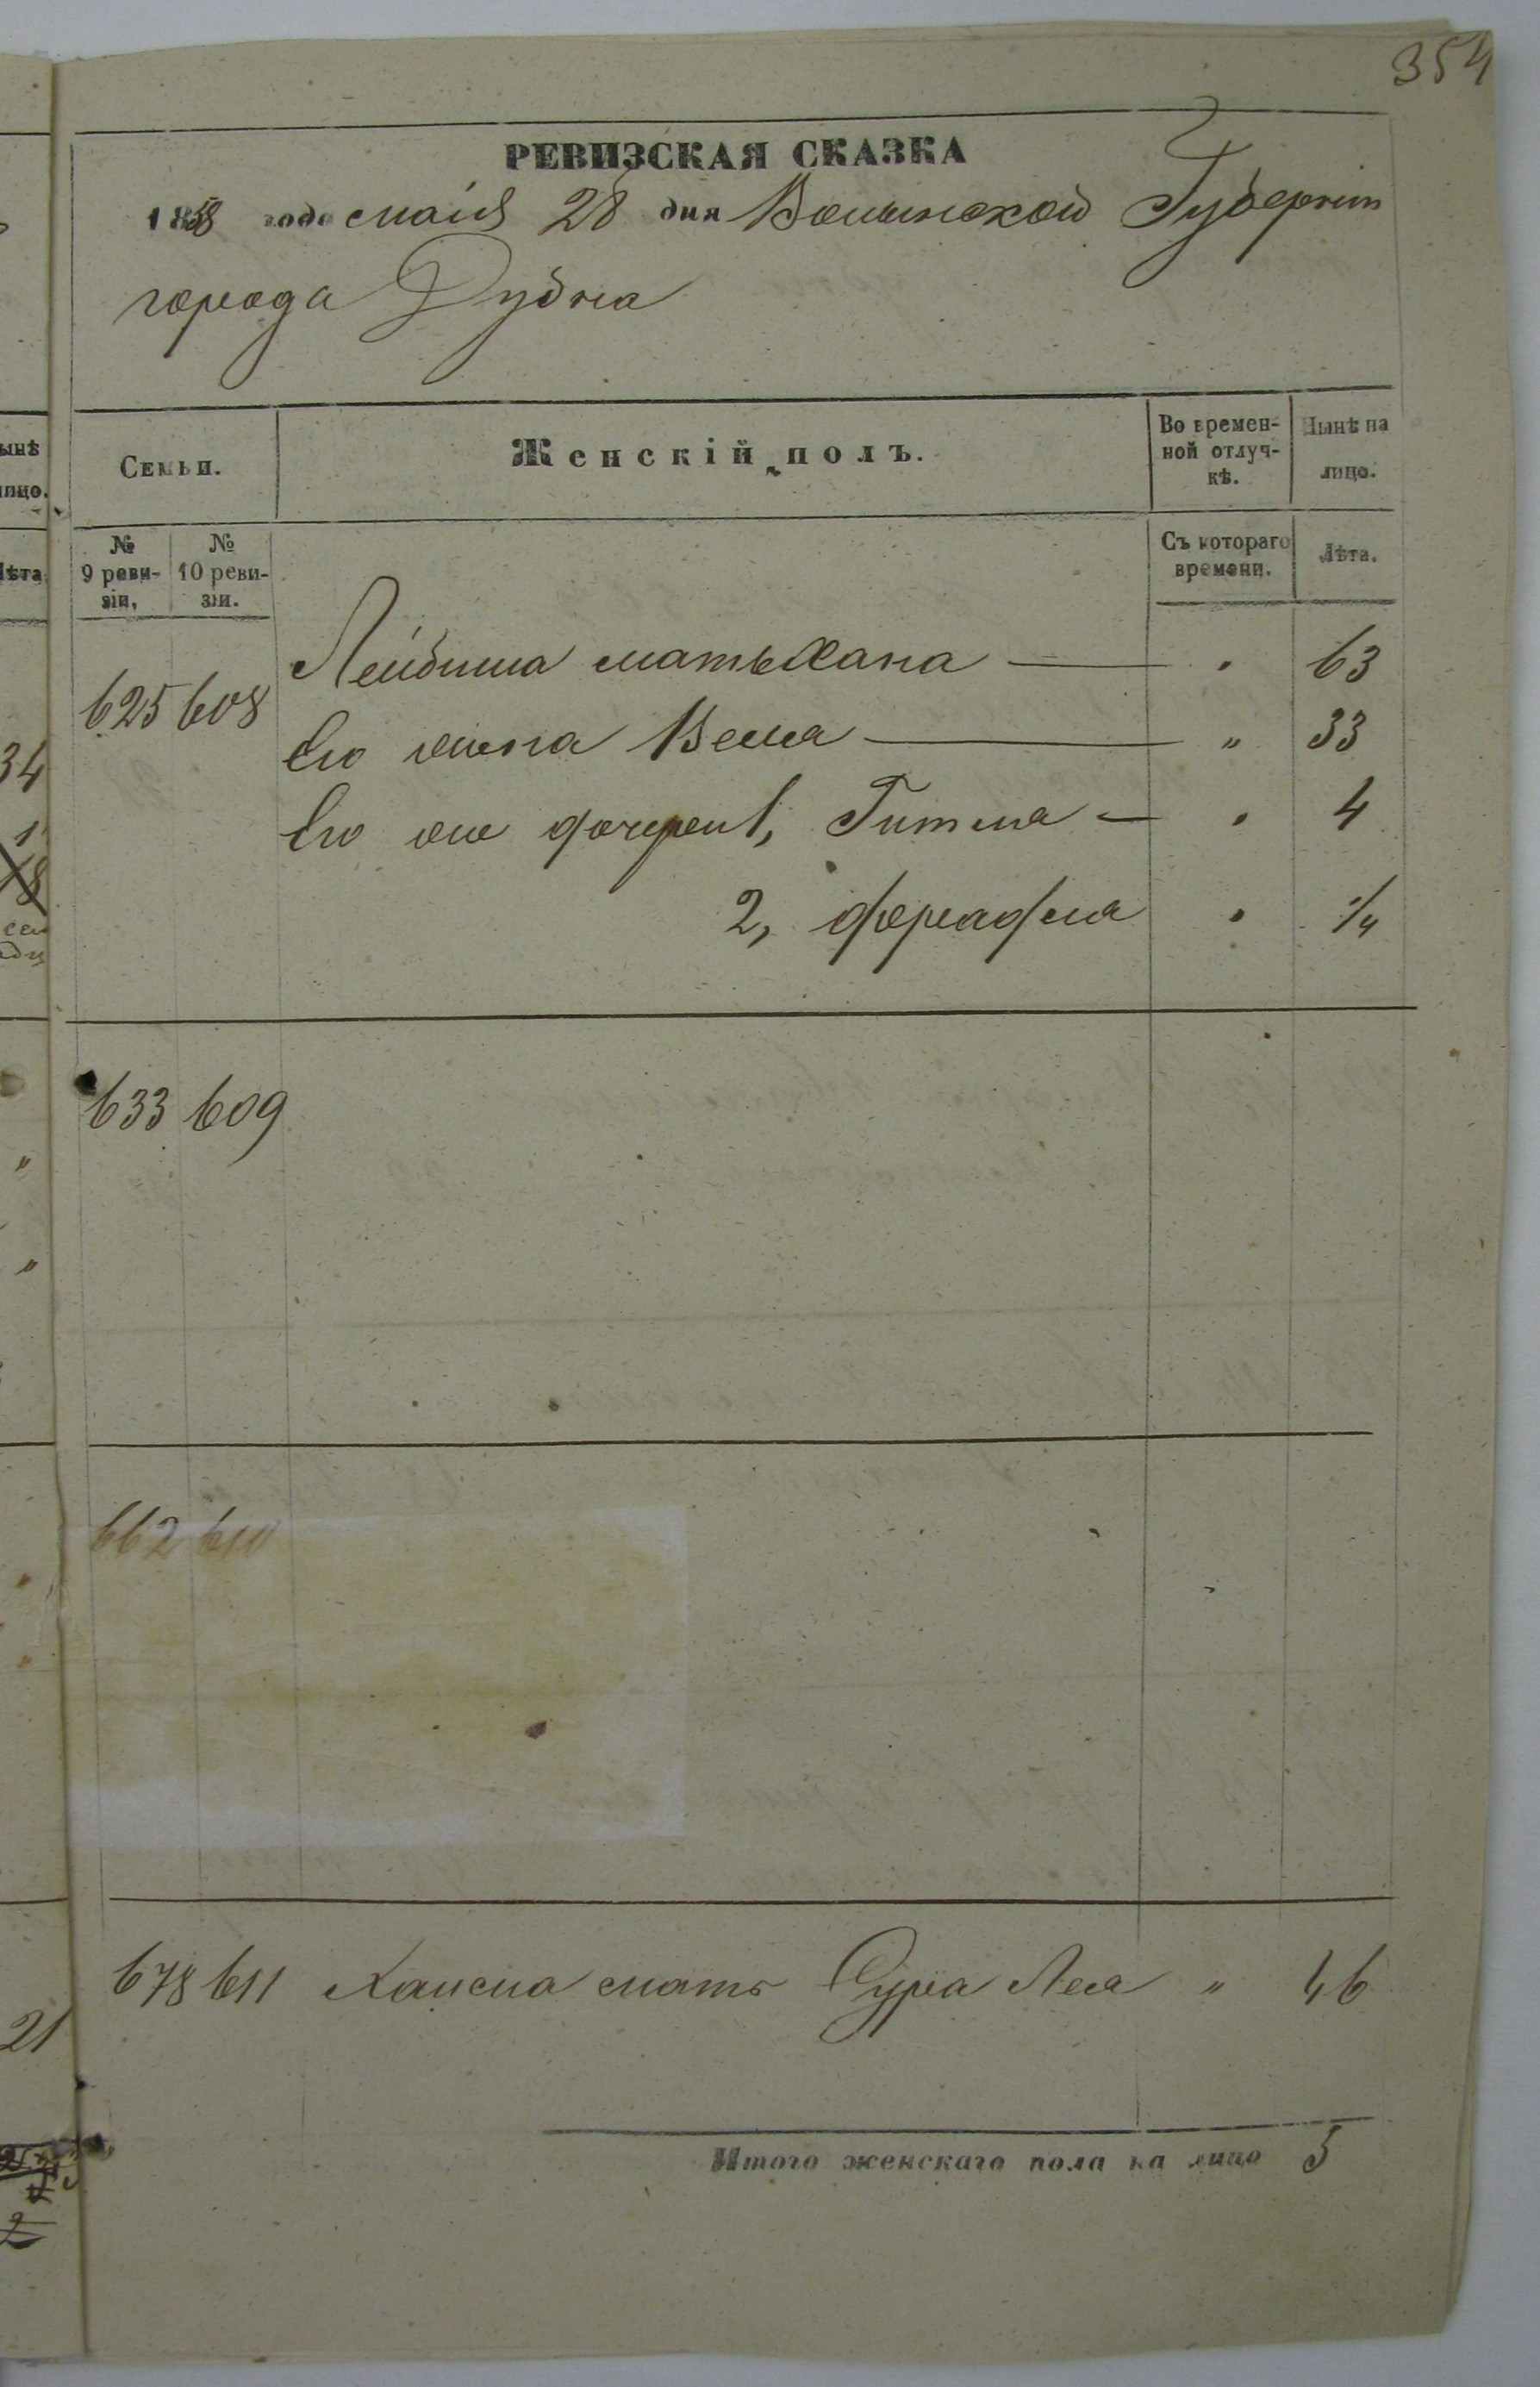 354
РЕВИЗСКАЯ СКАЗКА
1858 года маія 28 дня Волынской Губерніи
города Дубна
Семьи.
Женскій полъ.
Во времен-
ной отлуч-
кѣ.
Нынѣ на
лицо.
№
9 реви-
зіи.
№
10 реви-
зіи.
Съ котораго
времени.
Лѣта.
625 608 Лейбиша мать Хана — " 63
Его жена Беля — " 33
Его же дочери 1, Гитля — " 4
2, Фрадля " 1/4
633 609
662 610
678 611 Хаисма мать Сура Лея " 46
Итого женскаго пола на лицо 5
ынѣ
ицо.
ѣта.
34
1
21